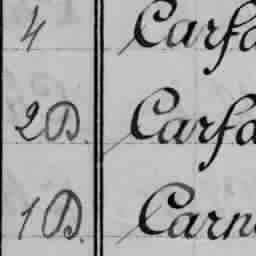 4 Carfa
2D. Carfa
1D. Carn